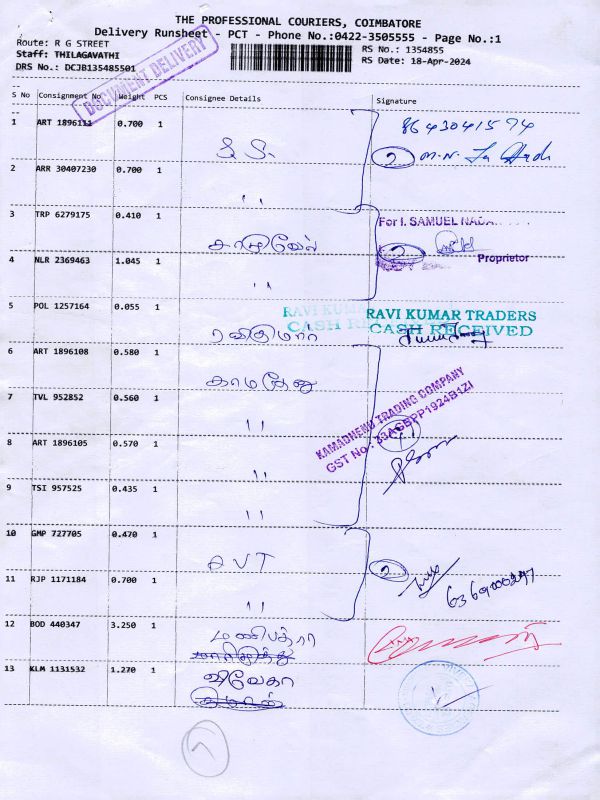 THE PROFESSIONAL COURIERS, COIMBATORE
Delivery Runsheet - PCT - Phone No.:0422-3505555 - Page No.:1
Route: R G STREET
Staff: THILAGAVATHI
DRS No.: DCJB135485501
RS No.: 1354855
RS Date: 18-Apr-2024
DOCUMENT DELIVERY
S No Consignment No Weight PCS Consignee Details Signature
1 ART 1896111 0.700 1 S.S. 8643041574
2 M.N.
2 ARR 30407230 0.700 1 ,,
3 TRP 6279175 0.410 1 For I. SAMUEL
2
Proprietor
4 NLR 2369463 1.045 1 ,,
5 POL 1257164 0.055 1 ரவிகுமார் RAVI KUMAR TRADERS
CASH RECEIVED
6 ART 1896108 0.580 1 காமதேனு
KAMADHENU TRADING COMPANY
GST No.: 33AGBPP1924B1ZI
7 TVL 952852 0.560 1 ,,
8 ART 1896105 0.570 1 ,,
9 TSI 957525 0.435 1 ,,
10 GMP 727705 0.470 1 AVT 2
11 RJP 1171184 0.700 1 ,,
12 BOD 440347 3.250 1 மணிபத்ரா
13 KLM 1131532 1.270 1 விவேகா